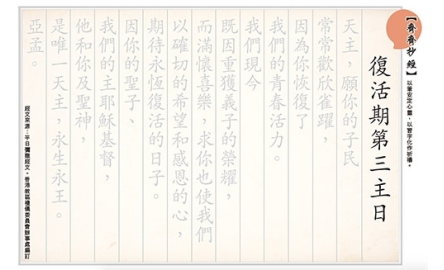 【齊齊抄經】以筆安定心靈,以習字化作祈禱。
復活期第三主日
天主,願你的子民
常常歡欣雀躍,
因為你恢復了
我們的青春活力。
我們現今
既因重獲義子的榮耀,
而滿懷喜樂,求你也使我們
以確切的希望和感恩的心,
期待永恆復活的日子。
因你的聖子、
我們的主耶穌基督,
他和你及聖神,
是唯一天主,永生永王。
亞孟。
經文來源:平日彌撒經文。香港教區禮儀委員會辦事處編訂